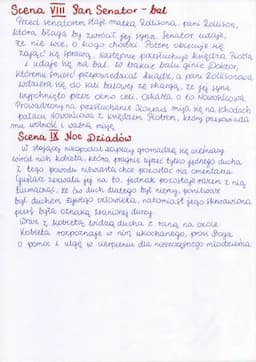 Scena VIII Pan Senator - bal
Przed senatorem staje matka Rollisona, pani Rollison,
która błaga by zwrócił jej syna. Senator udaje,
że nie wie, o kogo chodzi. Potem obiecuje się
zająć tą sprawą, następnie przesłuchuje księdza Piotra
i udaje się na bal. W trakcie balu ginie Doktor,
któremu śmierć przepowiedział ksiądz, a pani Rollisonowa
wdziera się do sali balowej ze skargą, że jej syna
wypchnięto przez okno celi. Oskarża o to Nowosilcowa.
Prowadzony na przesłuchanie Konrad mija się na schodach
pałacu Nowosilcowa z księdzem Piotrem, który przepowiada
mu wolność i ważną misję.
Scena IX Noc Dziadów
W stojącej nieopodal kaplicy gromadzą się wieśniacy
wśród nich kobieta, która pragnie ujrzeć tylko jednego ducha
z tego powodu niewiasta chce pozostać na cmentarzu.
Guślarz zezwala jej na to, jednak pozostaje razem z nią
tłumacząc, że ów duch dlatego był niemy, ponieważ
był duchem żywego człowieka, natomiast jego skrwawiona
pierś była oznaką zranionej duszy.
Wraz z kobietą widzą ducha z raną na czole.
Kobieta rozpoznaje w nim ukochanego, prosi Boga
o pomoc i ulgę w cierpieniu dla nieszczęsnego młodzieńca.